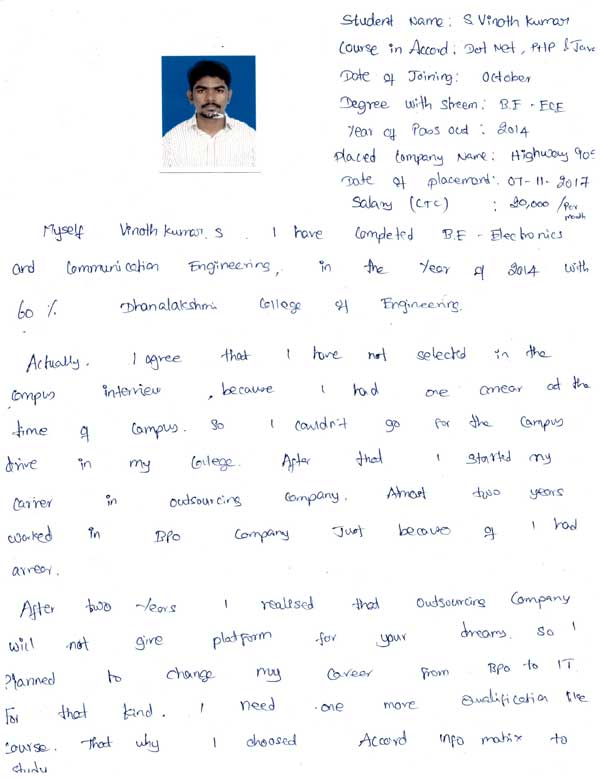 Student Name: S. Vinoth kumar
Course in Accord: Dot Net, PHP & Java
Date of Joining: October
Degree with streem: B.E - ECE
Year of Pass out: 2014
Placed Company Name: Highway 905
Date of placement: 07-11-2017
Salary (CTC) : 20,000 /Per month
Myself Vinoth kumar. S. I have completed B.E - Electronics
and Communication Engineering, in the Year of 2014 with
60 % Dhanalakshmi College of Engineering.
Actually. I agree that I have not selected in the
campus interview, because I had one arrear at the
time of campus. So I couldn't go for the campus
drive in my College. After that I started my
carrier in outsourcing company. Almost two years
worked in BPO company Just because of I had
arrear.
After two years I realised that outsourcing company
will not give platform for your dreams. So I
Planned to change my career from BPO to IT
For that kind. I need one more Qualification like
course. That why I choosed Accord info matix to
study